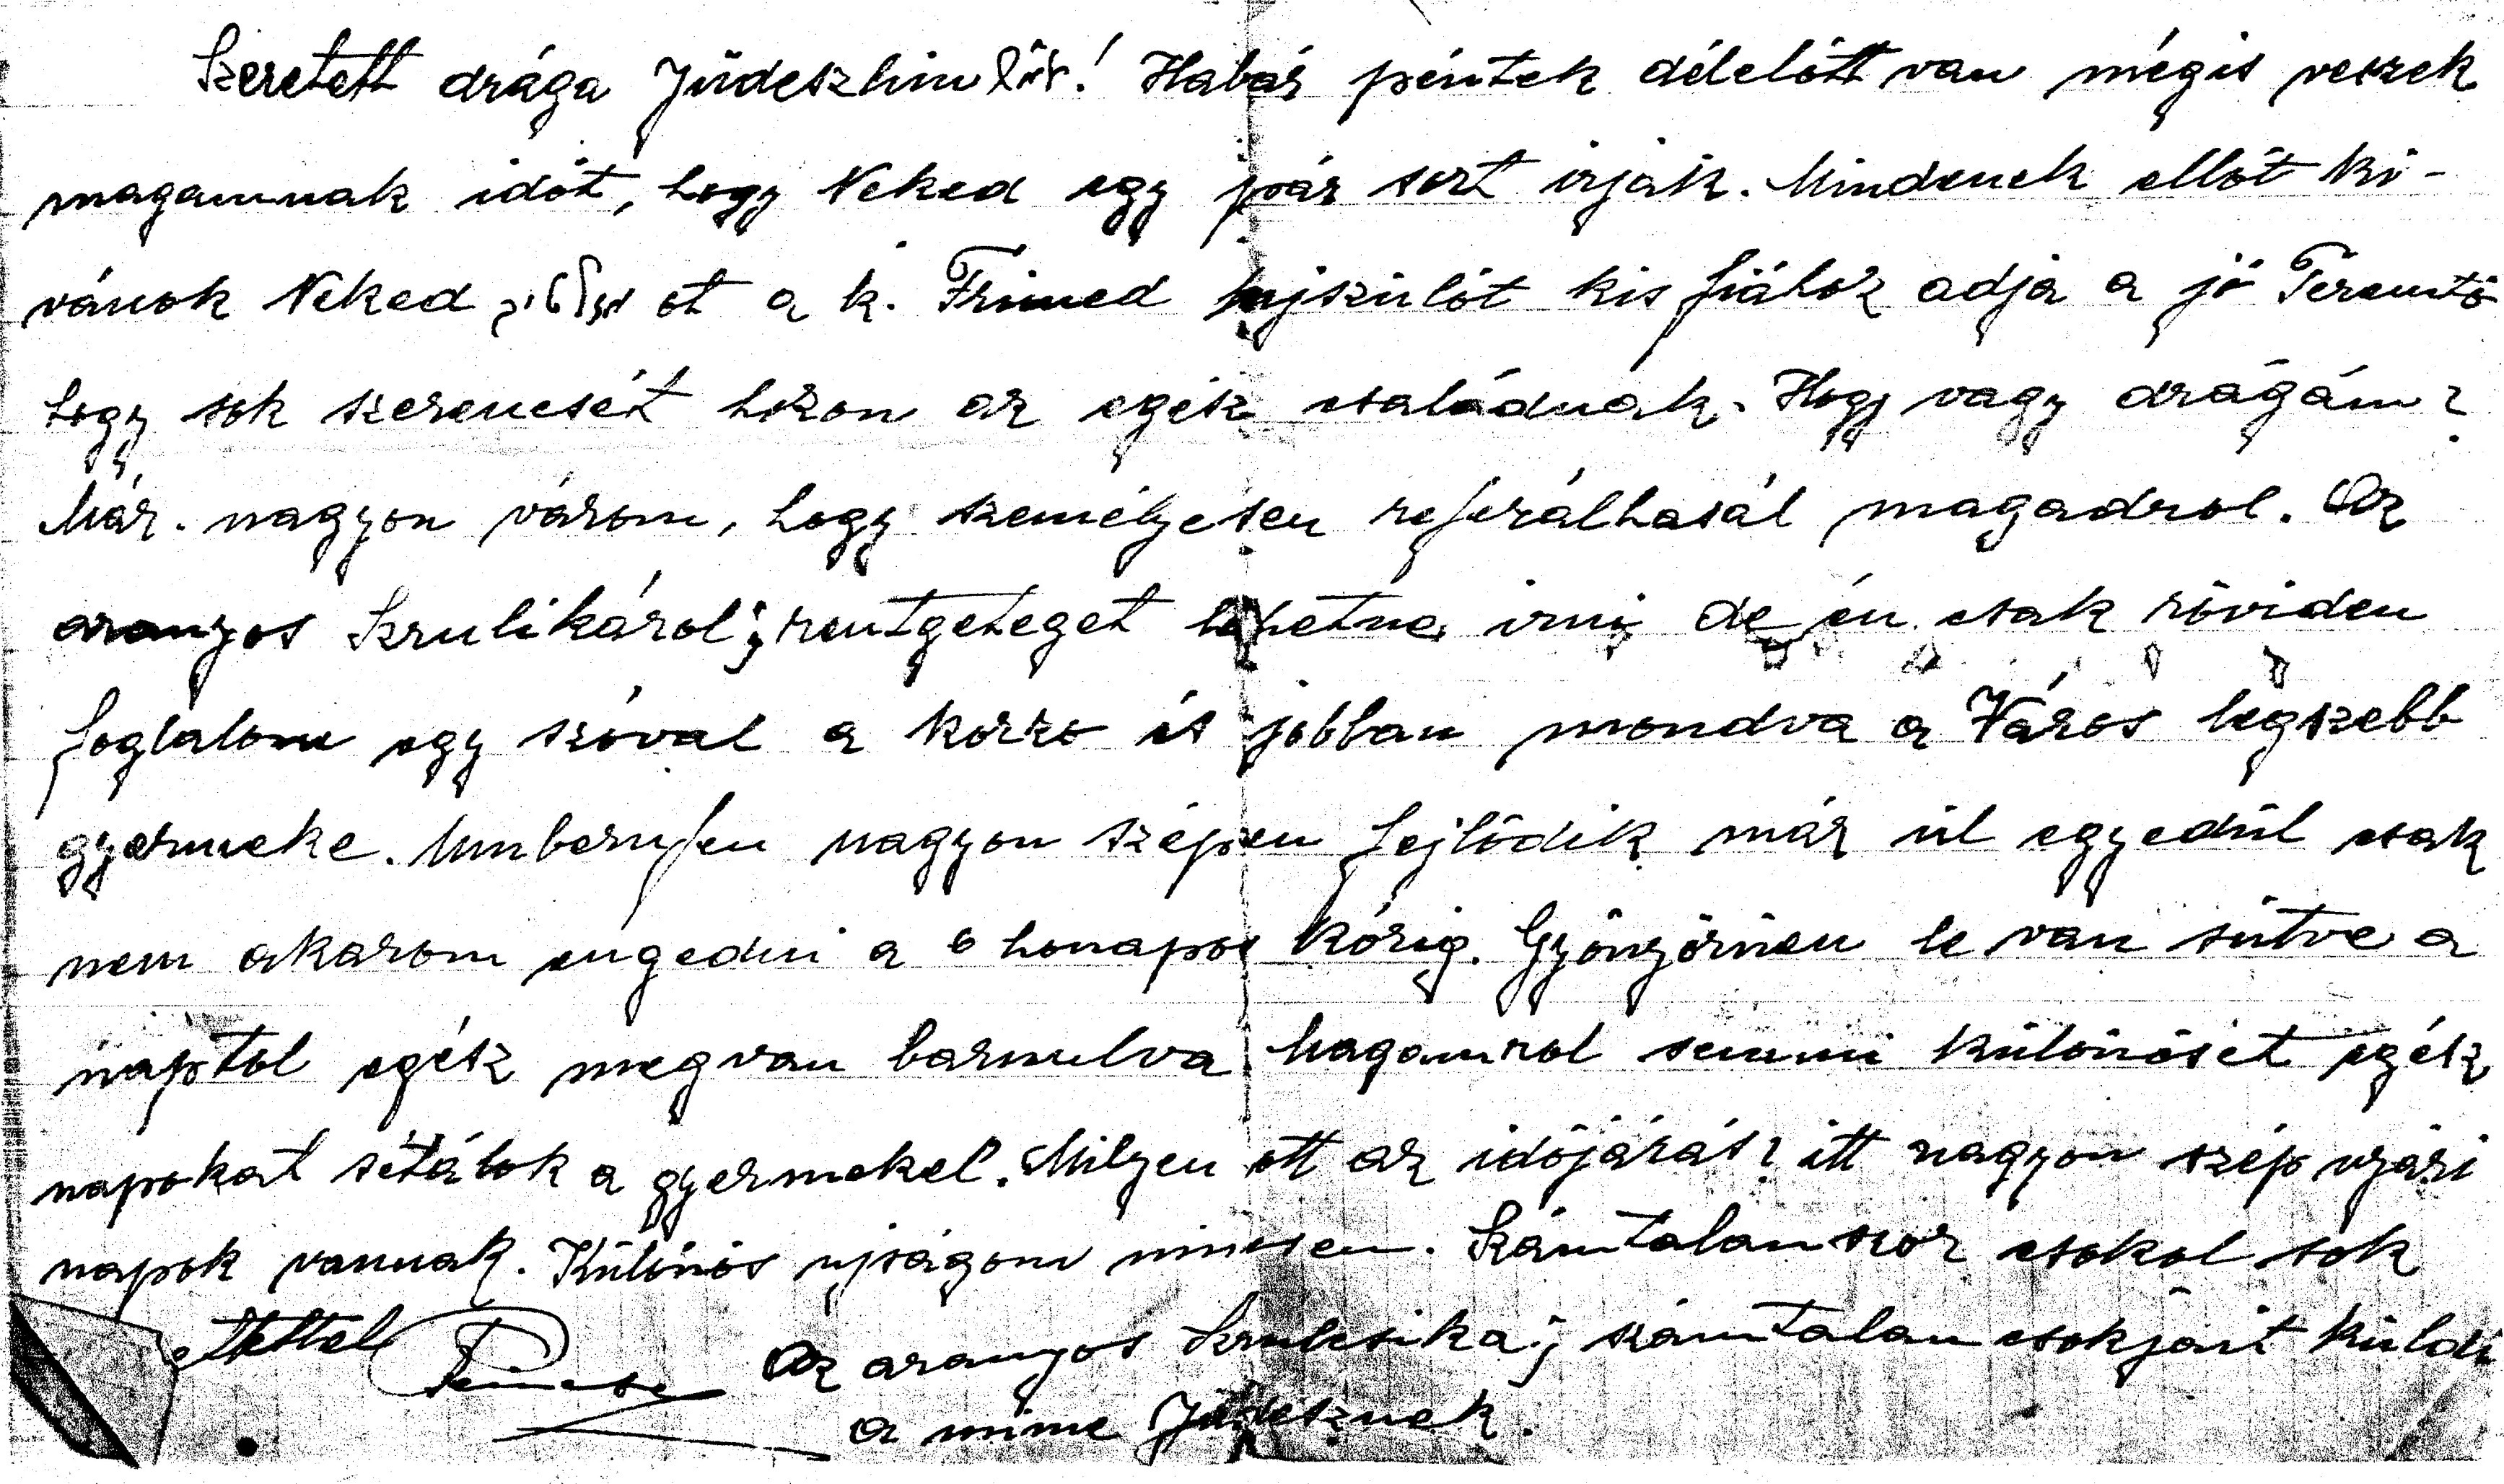 Szeretett drága Jüdeszhim! Habár péntek délelőtt van mégis veszek
magamnak időt, hogy Neked egy pár sort irjak. Mindenek ellőt ki-
vánok Neked ot a k. Frimed ujszülőt kis fiához adja a jó Teremtő
hogy sok szerencsét hozon az egész családnak. Hogy vagy drágám?
Már nagyon várom, hogy személyesen referálhasál magadrol. Az
aranyos Szrulikárol rentgeteget lehetne irni de én csak röviden
foglalom egy szóval a korzo és jobban mondva a Város legszebb
gyermeke. Umberufen nagyon szépen fejlődik már ül egyedül csak
nem akarom engedni a 6 honapos kórig. Gyönyörüen le van sütve a
naptol egész meg van barnulva Magamrol semmi különöset egész
napokat sétálok a gyermekel. Milyen ott az időjárás? itt nagyon szép nyári
napok vannak. Különös ujságom nincsen. Számtalanszor csokol sok
Az aranyos Szrulcsika számtalan csokjait küldi
a mime Jüdesznek.